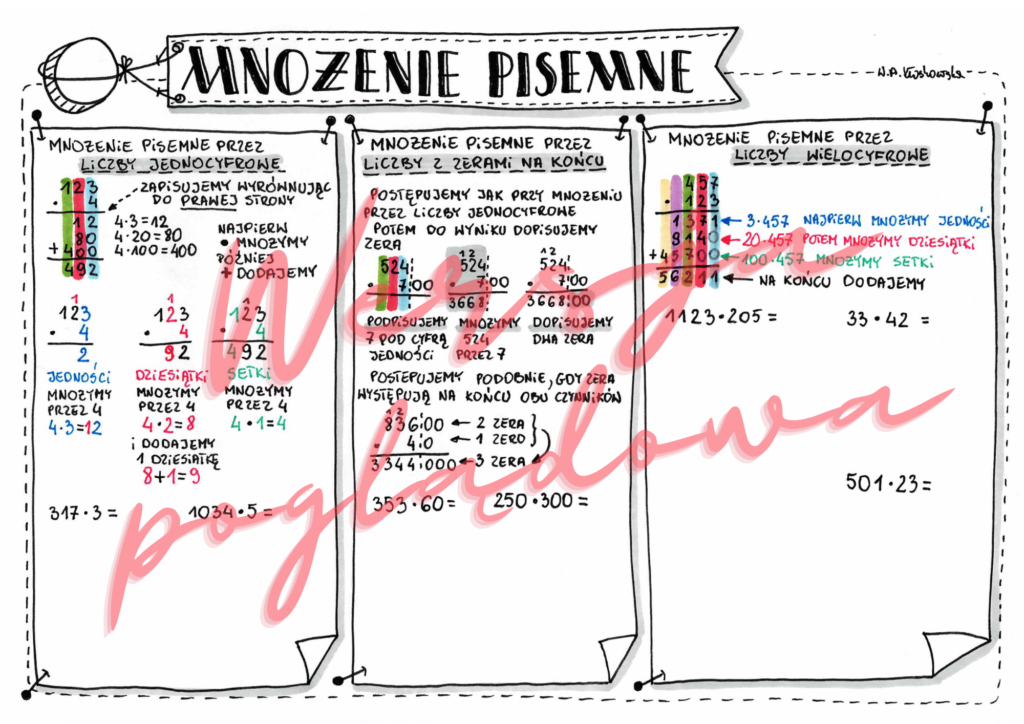 MNOŻENIE PISEMNE
MNOŻENIE PISEMNE PRZEZ
LICZBY JEDNOCYFROWE
123
· 4
12
80
+ 400
492
ZAPISUJEMY WYRÓWNUJĄC
DO PRAWEJ STRONY
4·3=12
4·20=80
4·100=400
NAJPIERW
• MNOŻYMY
PÓŹNIEJ
+ DODAJEMY
1
123
· 4
2
JEDNOŚCI
MNOŻYMY
PRZEZ 4
4·3=12
1
123
· 4
92
DZIESIĄTKI
MNOŻYMY
PRZEZ 4
4·2=8
i DODAJEMY
1 DZIESIĄTKĘ
8+1=9
1
123
· 4
492
SETKI
MNOŻYMY
PRZEZ 4
4·1=4
317·3=
1034·5=
MNOŻENIE PISEMNE PRZEZ
LICZBY Z ZERAMI NA KOŃCU
POSTĘPUJEMY JAK PRZY MNOŻENIU
PRZEZ LICZBY JEDNOCYFROWE
POTEM DO WYNIKU DOPISUJEMY
ZERA
524
· 700
PODPISUJEMY
7 POD CYFRĄ
JEDNOŚCI
12
524
· 700
3668
MNOŻYMY
524
PRZEZ 7
12
524
· 700
366800
DOPISUJEMY
DWA ZERA
POSTEPUJEMY PODOBNIE, GDY ZERA
WYSTĘPUJĄ NA KOŃCU OBU CZYNNIKÓW
12
83600 ← 2 ZERA
· 40 ← 1 ZERO
3344000 ← 3 ZERA
353·60=
250·300=
MNOŻENIE PISEMNE PRZEZ
LICZBY WIELOCYFROWE
457
· 123
1371 ← 3·457 NAJPIERW MNOŻYMY JEDNOŚCI
9140 ← 20·457 POTEM MNOŻYMY DZIESIĄTKI
+45700 ← 100·457 MNOŻYMY SETKI
56211 ← NA KOŃCU DODAJEMY
1123·205=
33·42 =
501·23=
Wersja
poglądowa